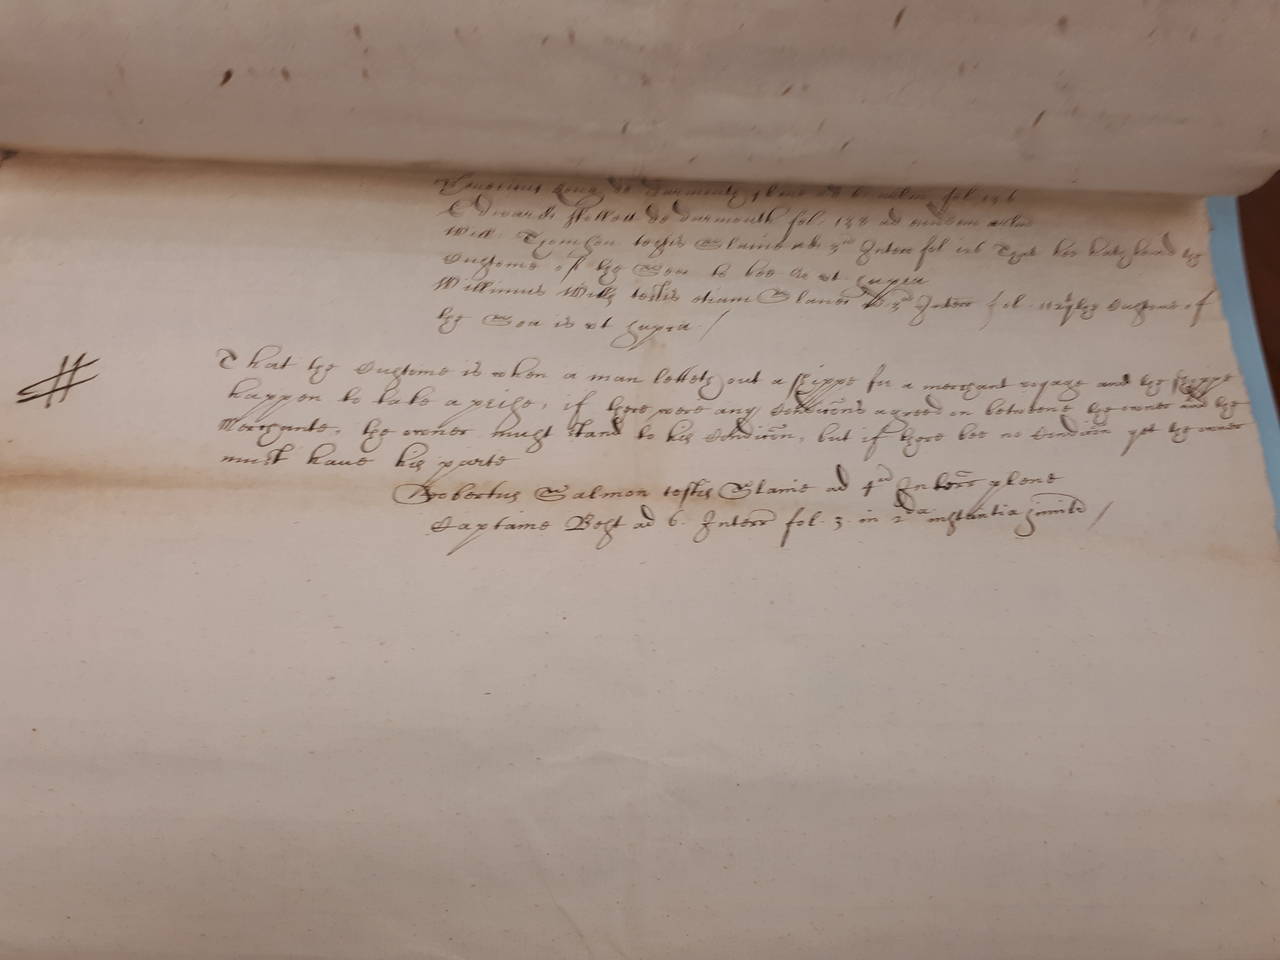 de darmouth plene ad 6 fol 136
Edward Follett de darmouth fol. 138 ad eundem
Will: Tomson testis Slanie ad 3um Interr fol 126 That hee hath heard the
Custome of the Sea to bee ut supra
Willimus Wills testis etiam Slanei ad 3um Interr fol. the Custome of
the Sea is ut supra /
# That the Custome is when a man letteth out a shippe for a merchant voyage and the shippe
happen to take a prise, if there were any Condicons agreed on betweene the owner and the
Merchante, the owner must stand to his Condicon, but if there bee no Condicon yet the owner
must have his parte
Robertus Salmon testis Slanie ad 4um Interr plene
Captaine Best ad 6. Interr fol. 3. in 2da instantia similr /